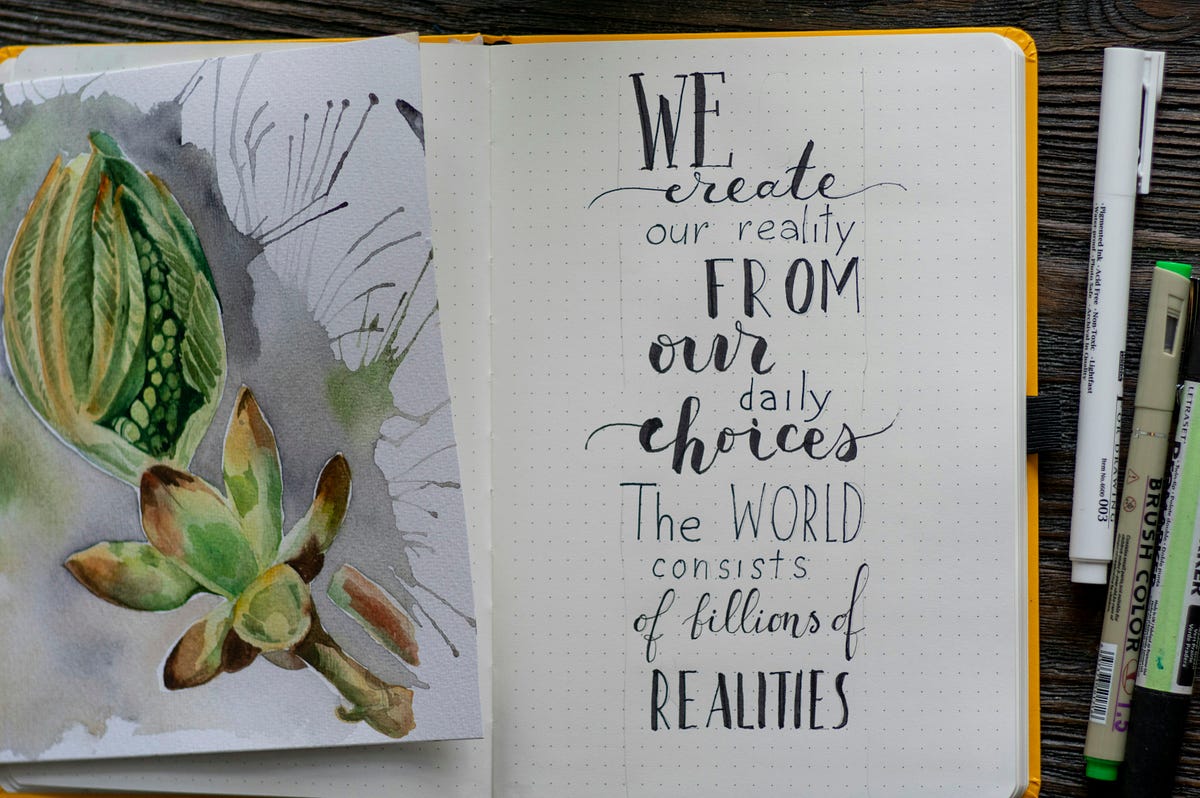 WE
create
our reality
FROM
our
daily
choices
The WORLD
consists
of billions of
REALITIES
•Pigmented Ink •Acid Free •Non-Toxic
•Archival in Quality •Lightfast
DRAWING
Item No.4600 003
BRUSH COLOR
1.5
LETRASET